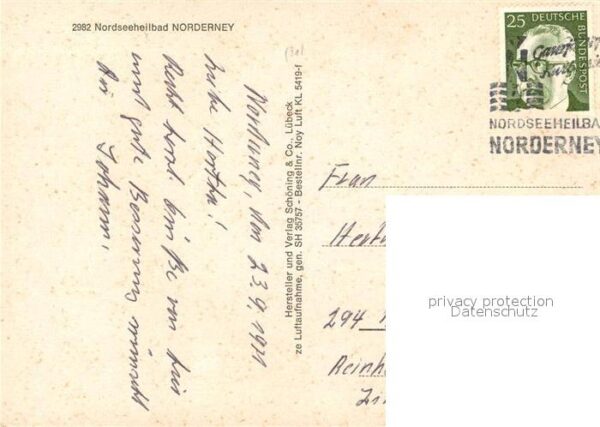 2982 Nordseeheilbad NORDERNEY
Norderney, den 23.9.1971
Liebe Hertha!
Recht herzl. Grüße von hier
und gute Besserung wünscht
Dir Johanna.
Hersteller und Verlag Schöning & Co., Lübeck
ze Luftaufnahme, gen. SH 35757 - Bestellnr. Noy Luft KL 5419-f
25 DEUTSCHE
BUNDESPOST
NORDSEEHEILBA
NORDERNEY
Frau
Hert
294
Reinh
privacy protection
Datenschutz